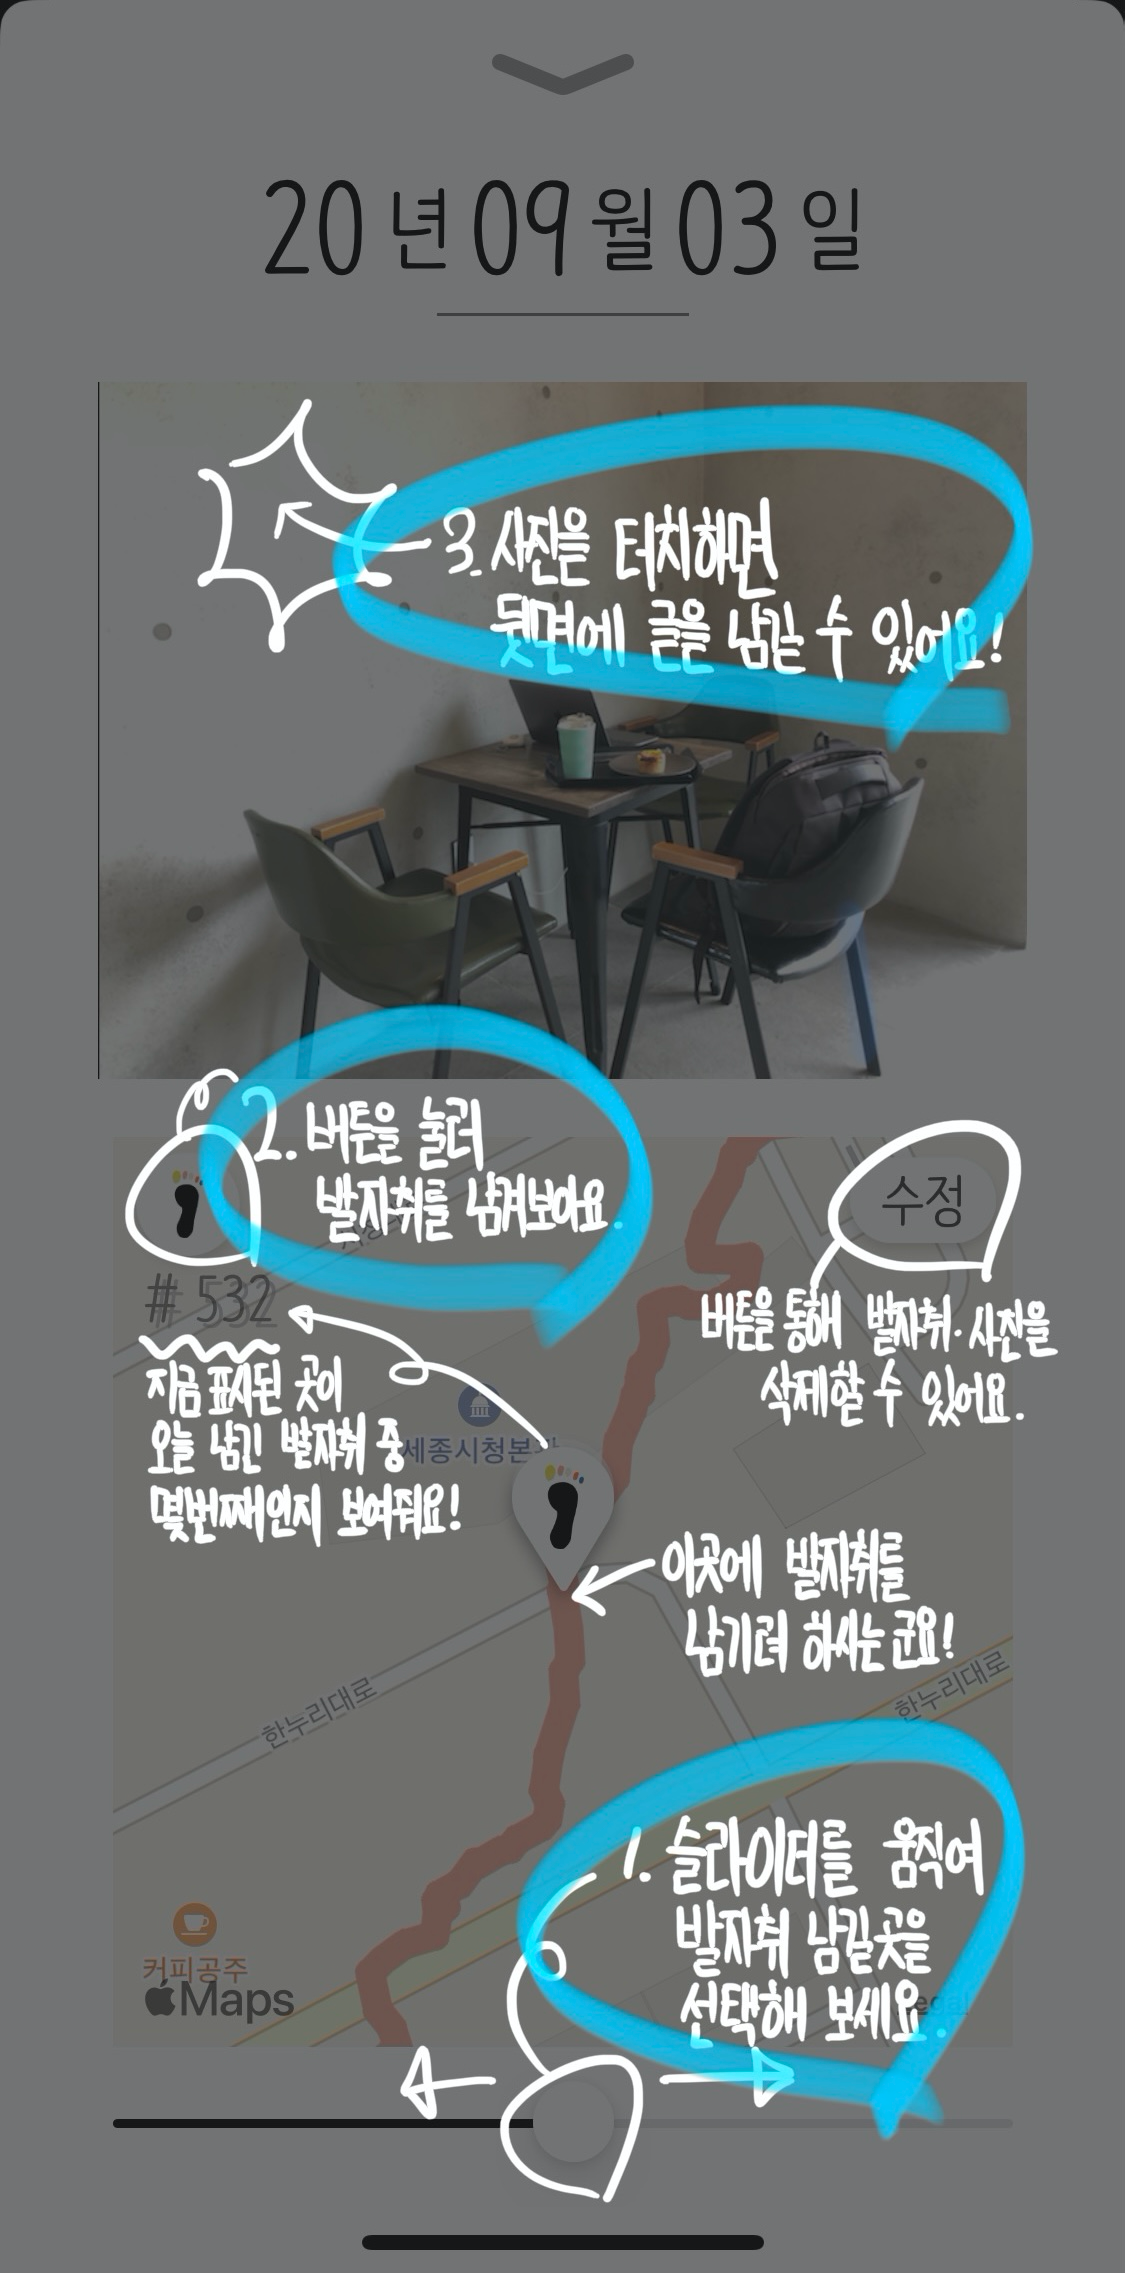 20년 09월 03일
3. 사진을 터치하면
뒷면에 글을 남길 수 있어요!
2. 버튼을 눌러
발자취를 남겨보아요.
수정
버튼을 통해 발자취·사진을
삭제할 수 있어요.
# 532
지금 표시된 곳이
오늘 남긴 발자취 중
몇번째인지 보여줘요!
세종시청본관
이곳에 발자취를
남기려 하시는군요!
한누리대로
한누리대로
1. 슬라이더를 움직여
발자취 남길곳을
선택해 보세요.
커피공주
Maps
Legal